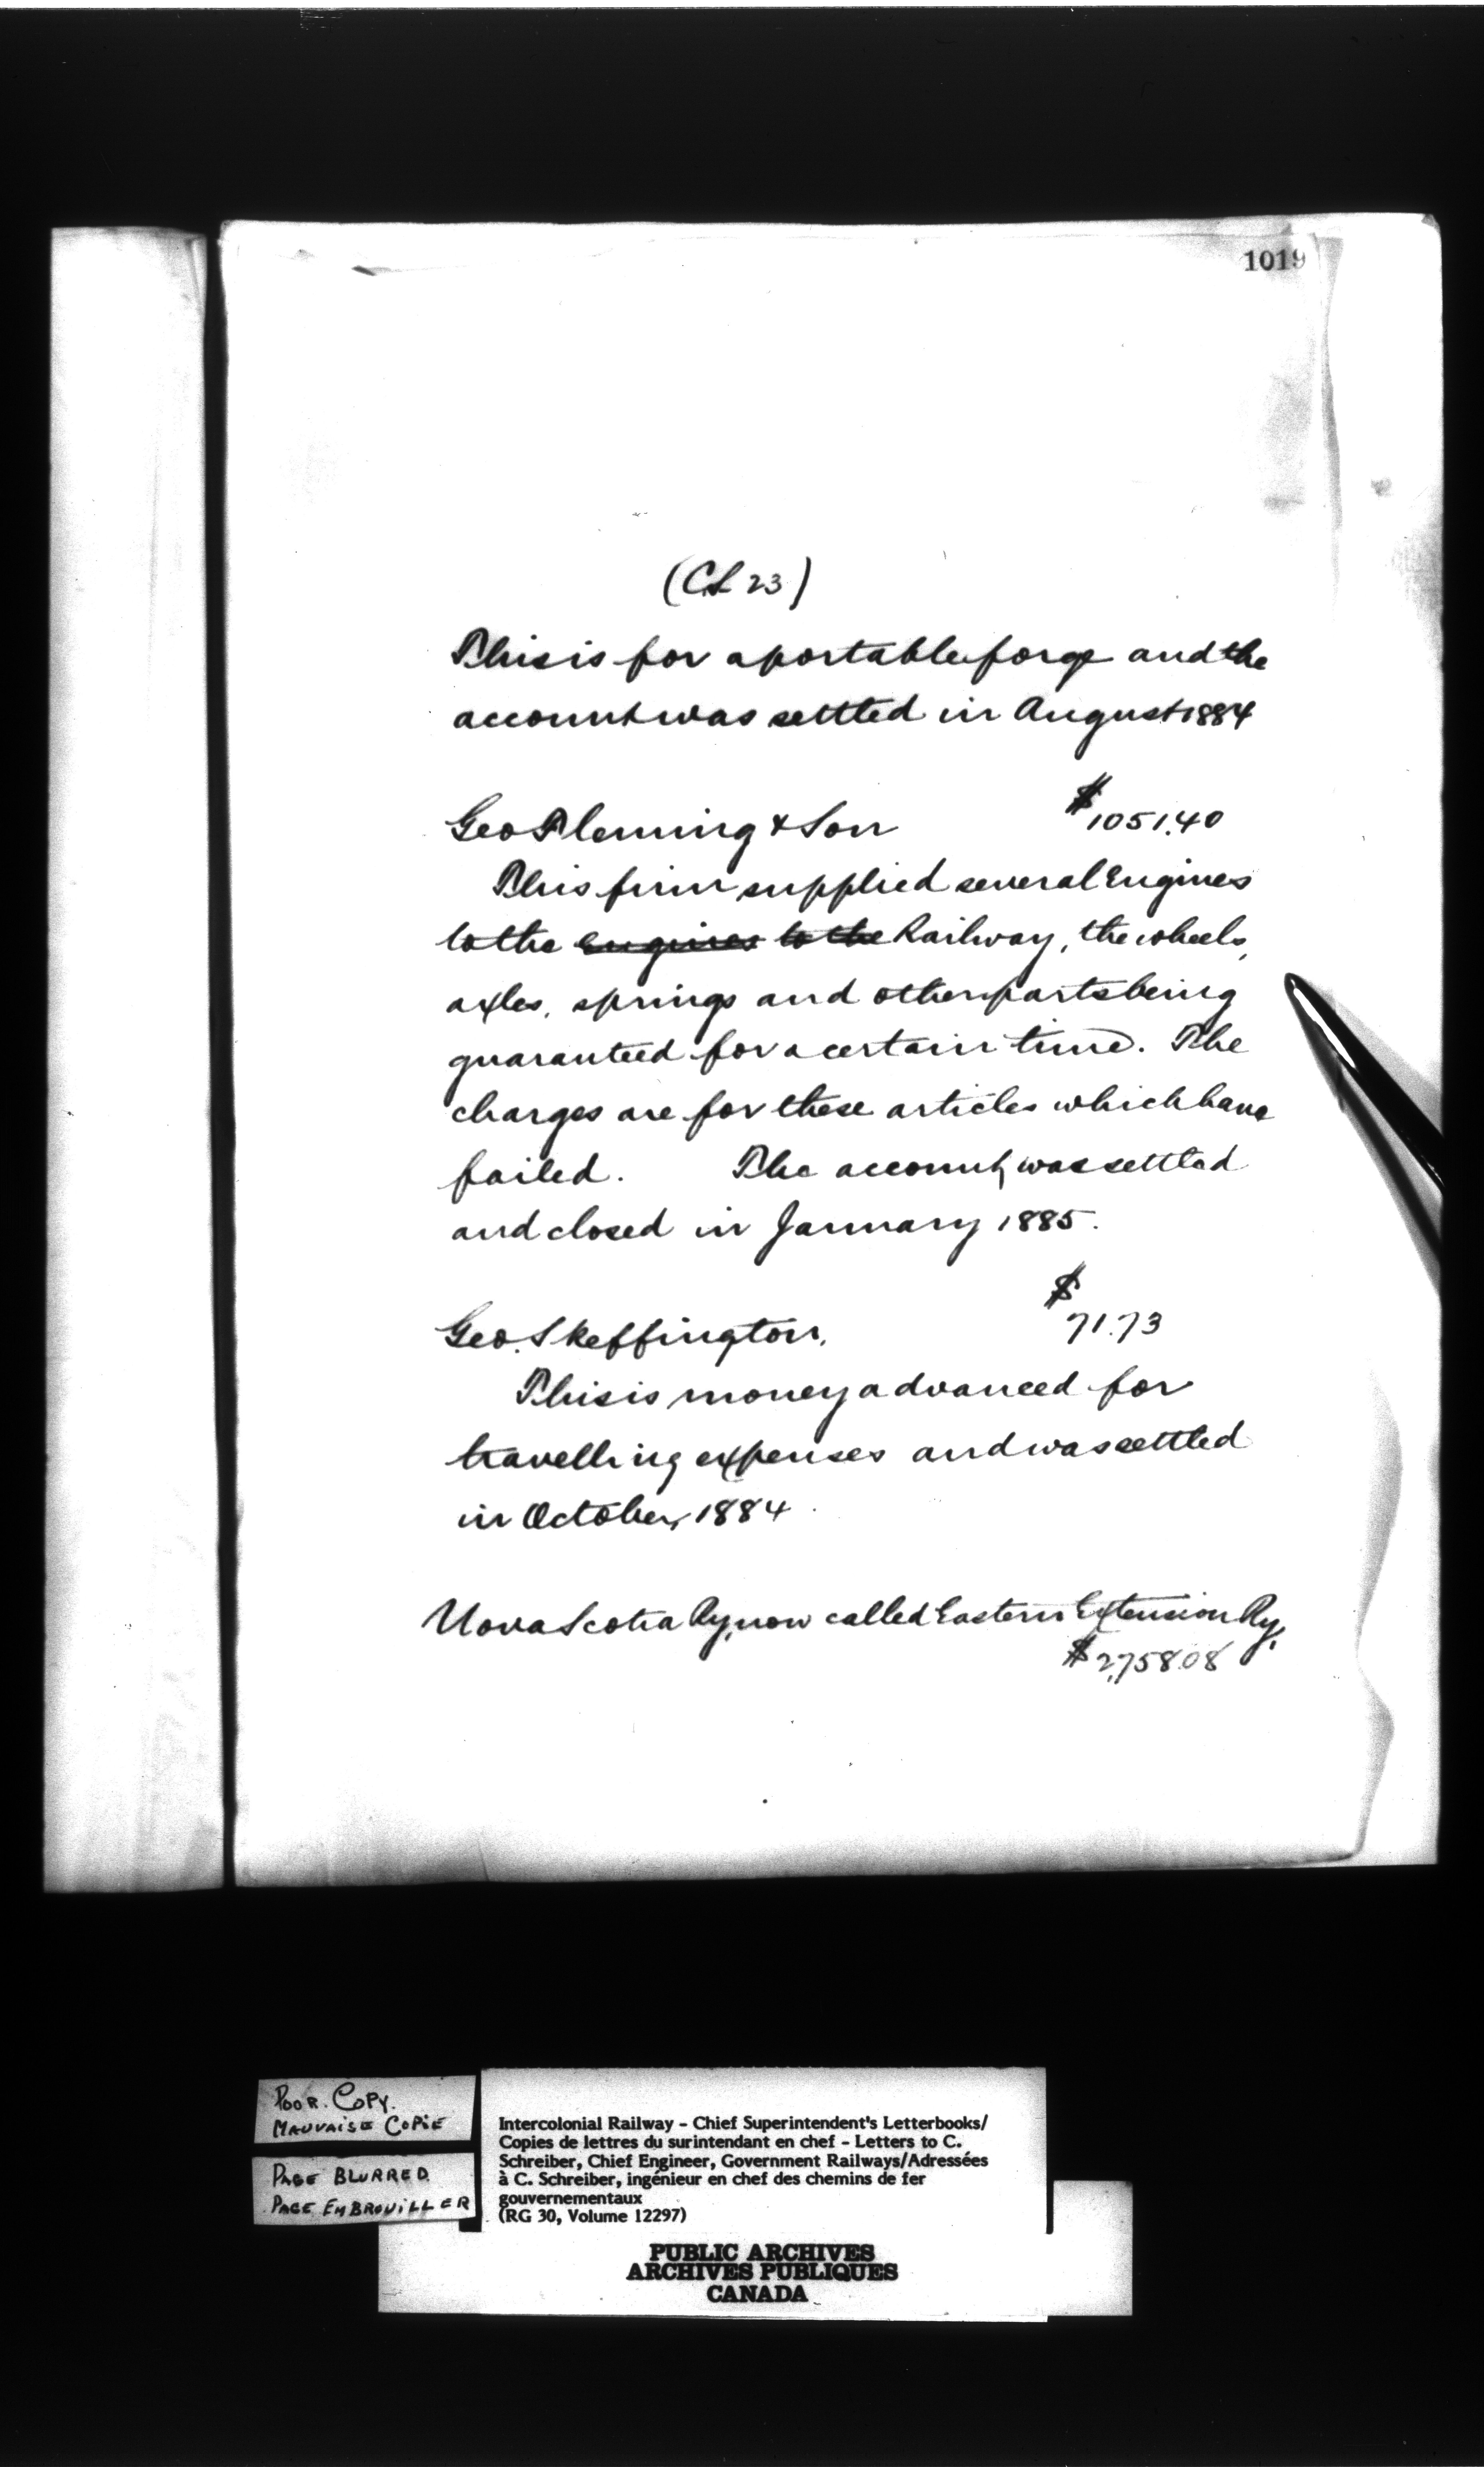 1019
(CS 23)
This is for a portable forge and the
account was settled in August 1884
Geo Fleming & Son $1051.40
This firm supplied several Engines
to the engines to the Railway, the wheels,
axles, springs and other parts being
guaranteed for a certain time. The
charges are for these articles which have
failed. The account was settled
and closed in January 1885.
Geo. Skeffington, $71.73
This is money advanced for
travelling expenses and was settled
in October, 1884.
Nova Scotia Ry, now called Eastern Extension Ry,
$2,758.08
POOR. COPY.
MAUVAISE COPIE
PAGE BLURRED
PAGE EMBROUILLER
Intercolonial Railway - Chief Superintendent's Letterbooks/
Copies de lettres du surintendant en chef - Letters to C.
Schreiber, Chief Engineer, Government Railways/Adressées
à C. Schreiber, ingénieur en chef des chemins de fer
gouvernementaux
(RG 30, Volume 12297)
PUBLIC ARCHIVES
ARCHIVES PUBLIQUES
CANADA